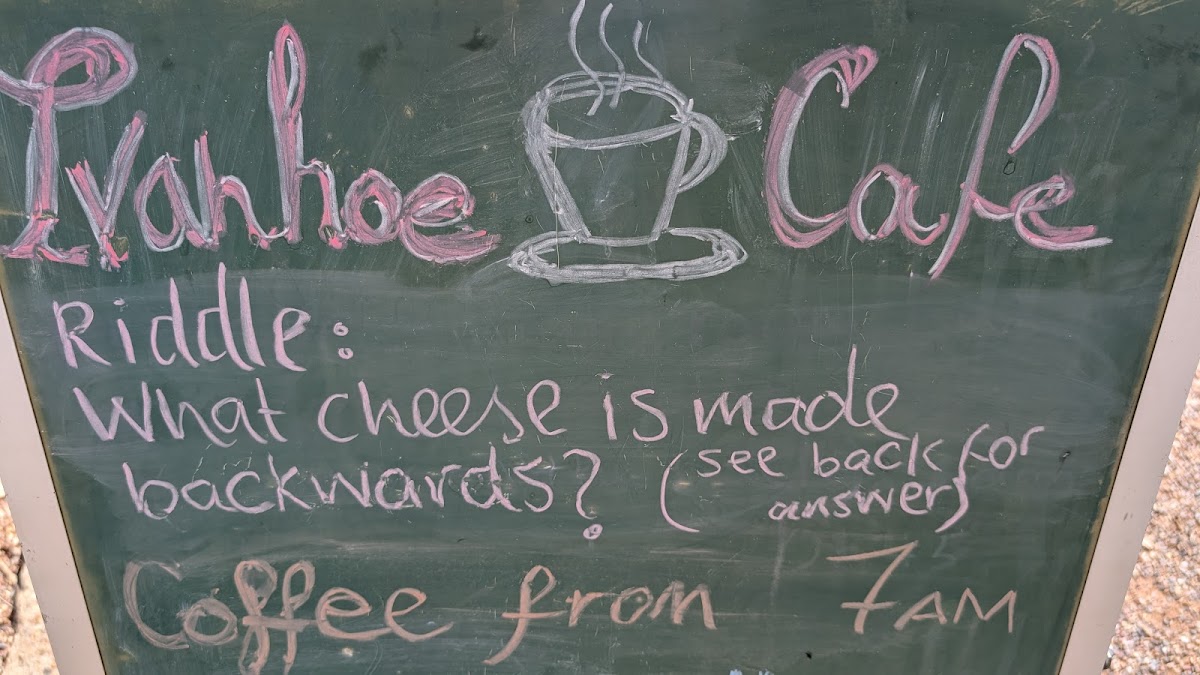 Ivanhoe Cafe
Riddle:
What cheese is made
backwards? (see back for
answer)
Coffee from 7AM